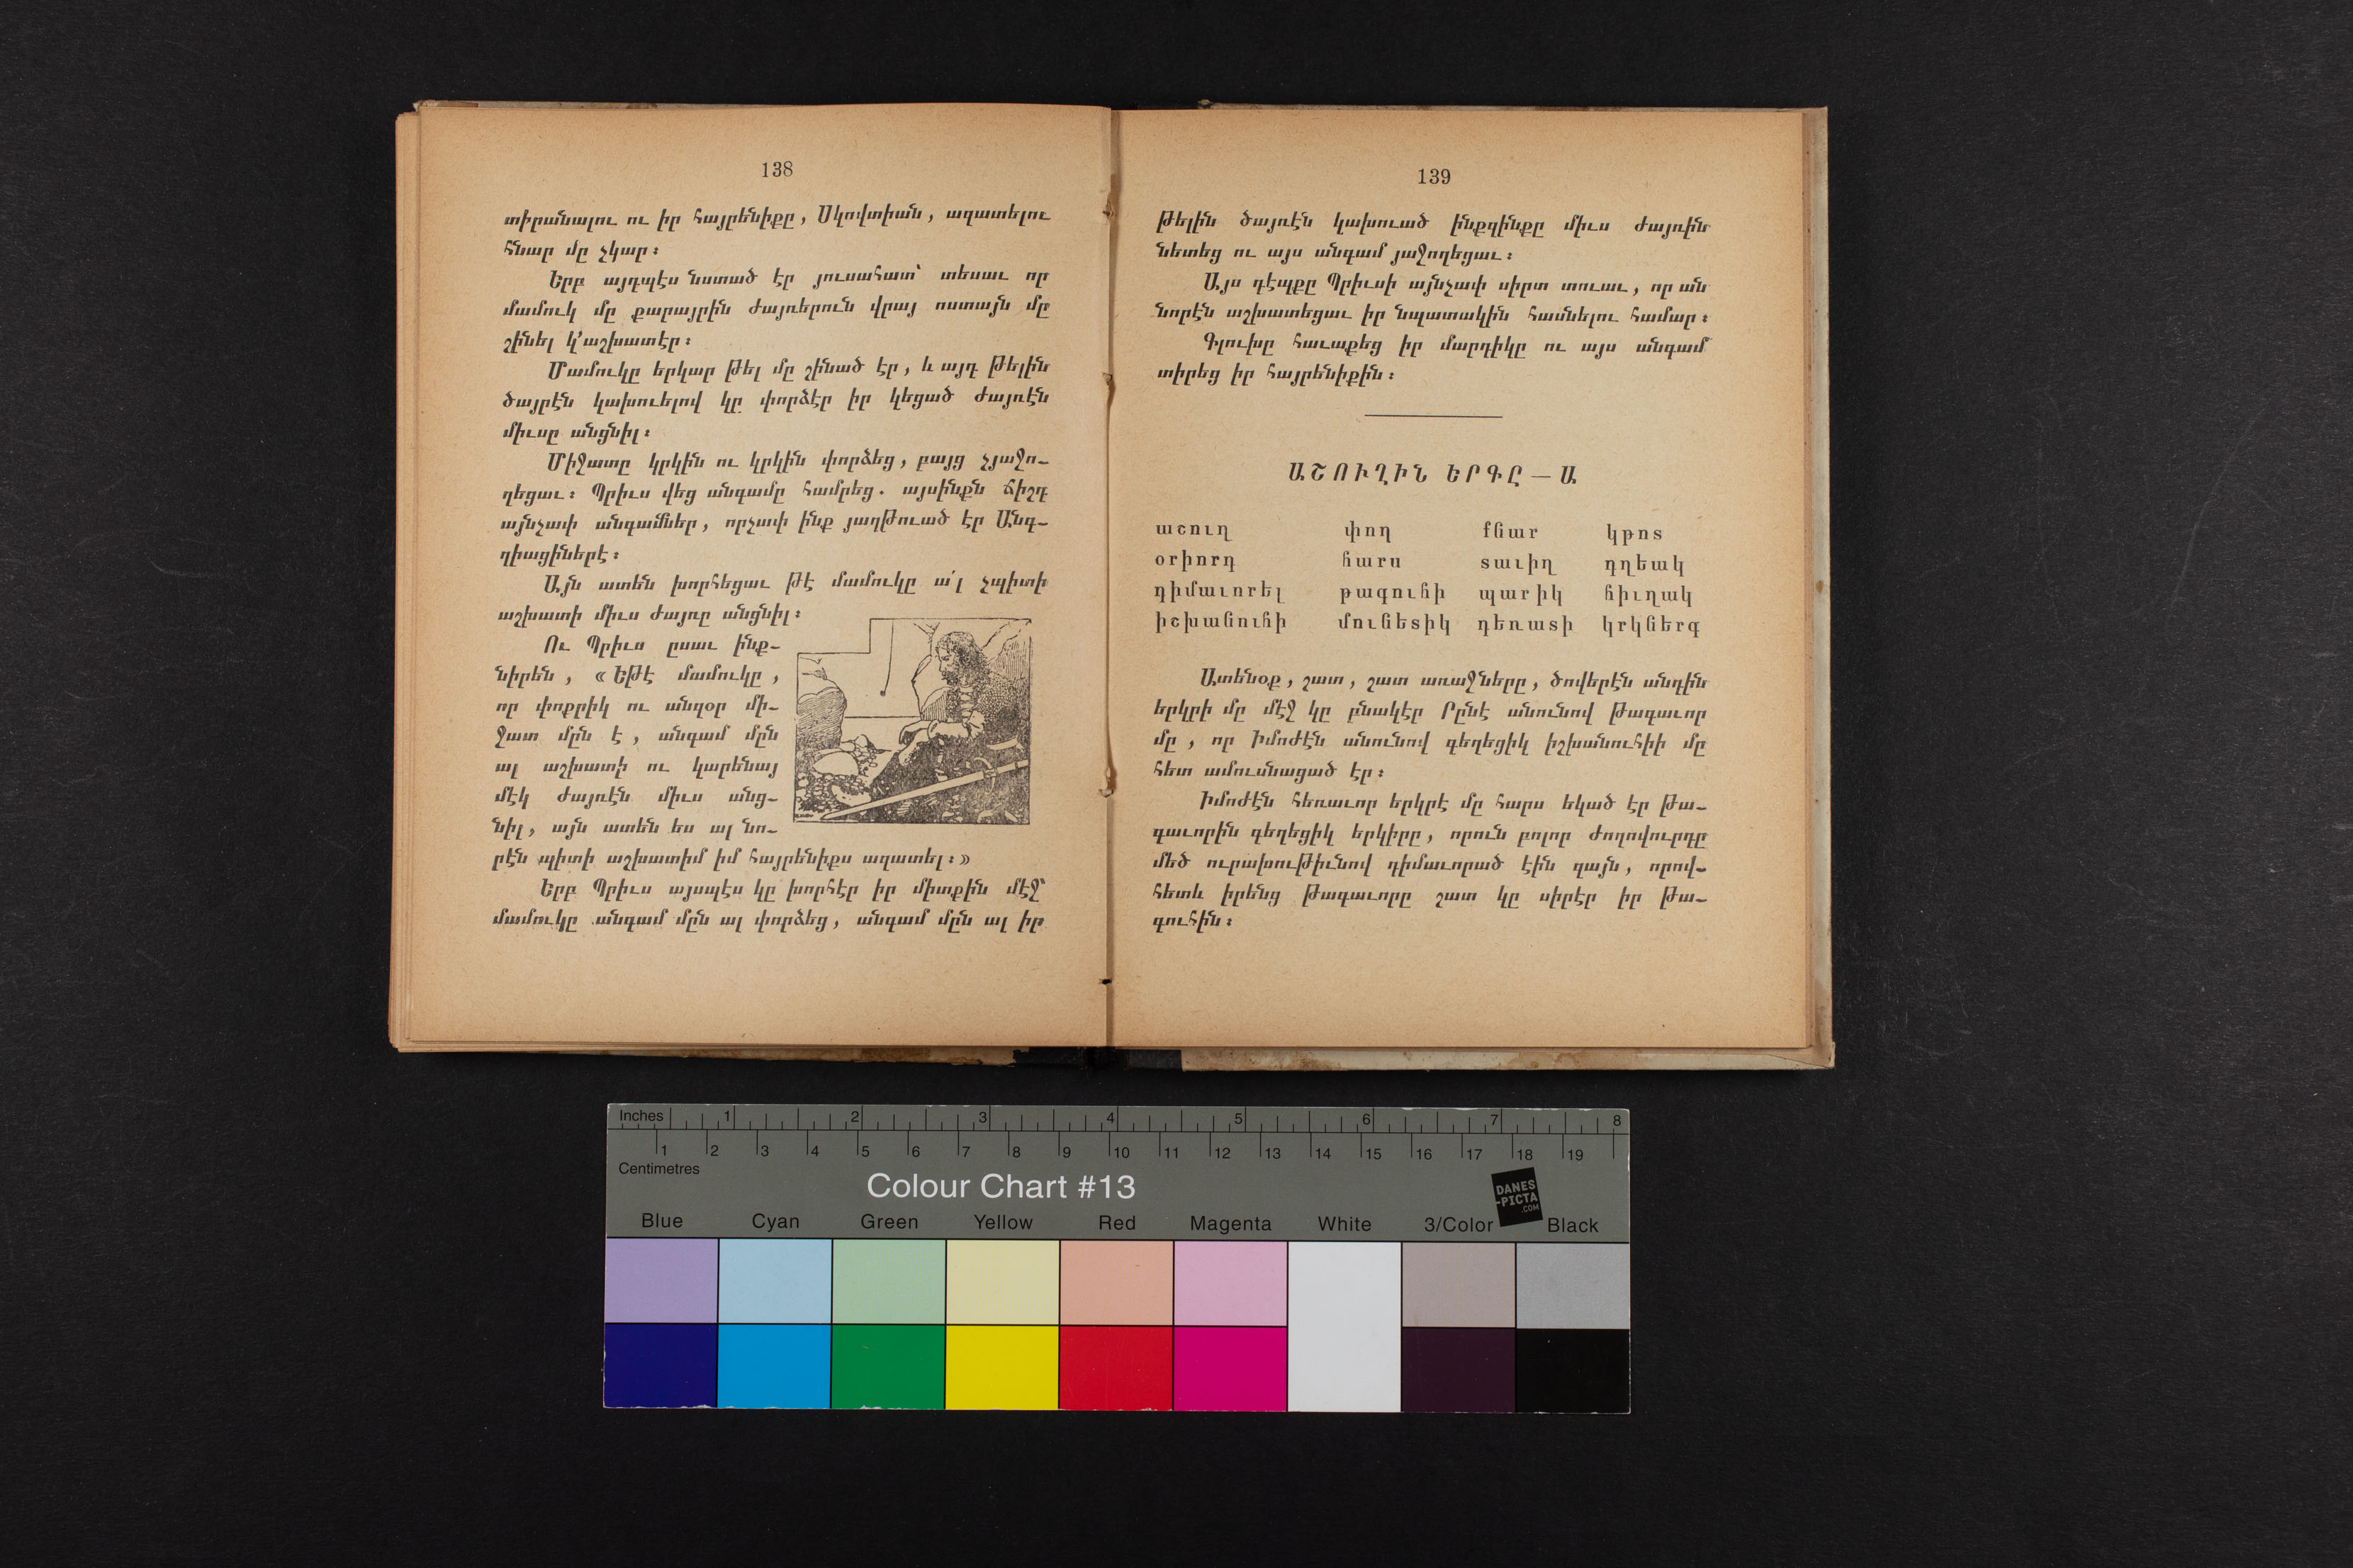 138
տիրանալու ու իր հայրենիքը, Սկովտիան, ազատելու
հնար մը չկար։
Երբ այդպէս նստած էր յուսահատ՝ տեսաւ որ
մամուկ մը քարայրին ժայռերուն վրայ ոստայն մը
շինել կ՚աշխատէր։
Մամուկը երկար թել մը շինած էր, և այդ թելին
ծայրէն կախուելով կը փորձէր իր կեցած ժայռէն
միւսը անցնիլ։
Միջատը կրկին ու կրկին փորձեց, բայց չյաջո-
ղեցաւ։ Պրիւս վեց անգամը համրեց. այսինքն ճիշդ
այնչափ անգամներ, որչափ ինք յաղթուած էր Անգ-
ղիացիներէ։
Այն ատեն խորհեցաւ թէ մամուկը ա՛լ չպիտի
աշխատի միւս ժայռը անցնիլ։
Ու Պրիւս ըսաւ ինք-
նիրեն, «Եթէ մամուկը,
որ փոքրիկ ու անզօր մի-
ջատ մըն է, անգամ մըն
ալ աշխատի ու կարենայ
մէկ ժայռէն միւս անց-
նիլ, այն ատեն ես ալ նո-
րէն պիտի աշխատիմ իմ հայրենիքս ազատել։»
Երբ Պրիւս այսպէս կը խորհէր իր միտքին մէջ՝
մամուկը անգամ մըն ալ փորձեց, անգամ մըն ալ իր
139
թելին ծայռէն կախուած ինքզինքը միւս ժայռին
նետեց ու այս անգամ յաջողեցաւ։
Այս դէպքը Պրիւսի այնչափ սիրտ տուաւ, որ ան
նորէն աշխատեցաւ իր նպատակին հասնելու համար։
Գլուխը հաւաքեց իր մարդիկը ու այս անգամ
տիրեց իր հայրենիքին։
ԱՇՈՒՂԻՆ ԵՐԳԸ — Ա
աշուղ փող քնար կթոտ
օրիորդ հարս տաւիղ դղեակ
դիմաւորել թագուհի պարիկ հիւղակ
իշխանուհի մունետիկ դեռատի կրկներգ
Ատենօք, շատ, շատ առաջները, ծովերէն անդին
երկրի մը մէջ կը բնակէր Րընէ անունով թագաւոր
մը, որ Իմոժէն անունով գեղեցիկ իշխանուհիի մը
հետ ամուսնացած էր։
Իմոժէն հեռաւոր երկրէ մը հարս եկած էր թա-
գաւորին գեղեցիկ երկիրը, որուն բոլոր ժողովուրդը
մեծ ուրախութիւնով դիմաւորած էին զայն, որով-
հետև իրենց թագաւորը շատ կը սիրէր իր թա-
գուհին։
Inches 1 2 3 4 5 6 7 8
1 2 3 4 5 6 7 8 9 10 11 12 13 14 15 16 17 18 19
Centimetres
Colour Chart #13
DANES
-PICTA
.COM
Blue Cyan Green Yellow Red Magenta White 3/Color Black